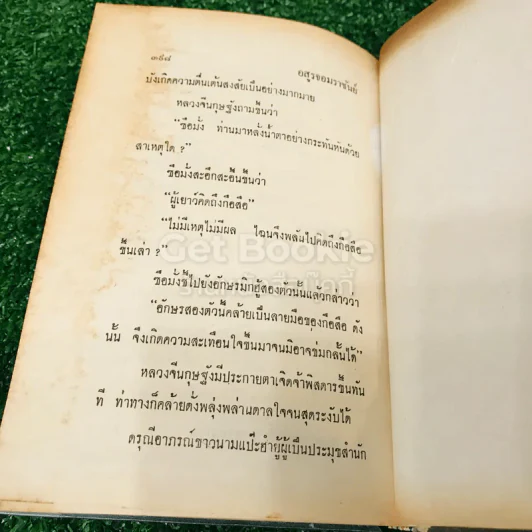 ๓๔๘
อสูรจอมราชันย์
บังเกิดความตื่นเต้นสงสัยเป็นอย่างมากมาย
หลวงจีนกุษฐังถามขึ้นว่า
“ซือมั่ง ท่านมาหลั่งน้ำตาอย่างกระทันหันด้วย
สาเหตุใด ?”
ซือมั่งสะอึกสะอื้นขึ้นว่า
“ผู้เยาว์คิดถึงกือสือ”
“ไม่มีเหตุไม่มีผล ไฉนจึงพลันไปคิดถึงกือสือ
ขึ้นเล่า ?”
ซือมั่งชี้ไปยังอักษรมิกฮู้สองตัวนั้นแล้วกล่าวว่า
“อักษรสองตัวนี้คล้ายเป็นลายมือของกือสือ ดัง
นั้น จึงเกิดความสะเทือนใจขึ้นมาจนมิอาจข่มกลั้นได้”
หลวงจีนกุษฐังมีประกายตาเจิดจ้าพิสดารขึ้นทัน
ที ท่าทางก็คล้ายดั่งพลุ่งพล่านดาลใจจนสุดระงับได้
ดรุณีอาภรณ์ขาวนามแป๊ะฮำยู้ผู้เป็นประมุขสำนัก
Get Bookie